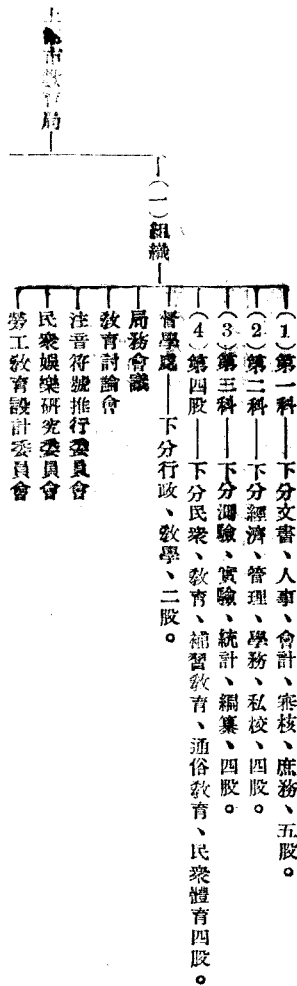 上海市教育局
(一)組織
(1)第一科——下分文書、人事、會計、審核、庶務、五股。
(2)第二科——下分經濟、管理、學務、私校、四股。
(3)第三科——下分測驗、實驗、統計、編纂、四股。
(4)第四股——下分民衆、敎育、補習敎育、通俗敎育、民衆體育四股。
督學處——下分行政、敎學、二股。
局務會議
敎育討論會
注音符號推行委員會
民衆娛樂研究委員會
勞工敎育設計委員會